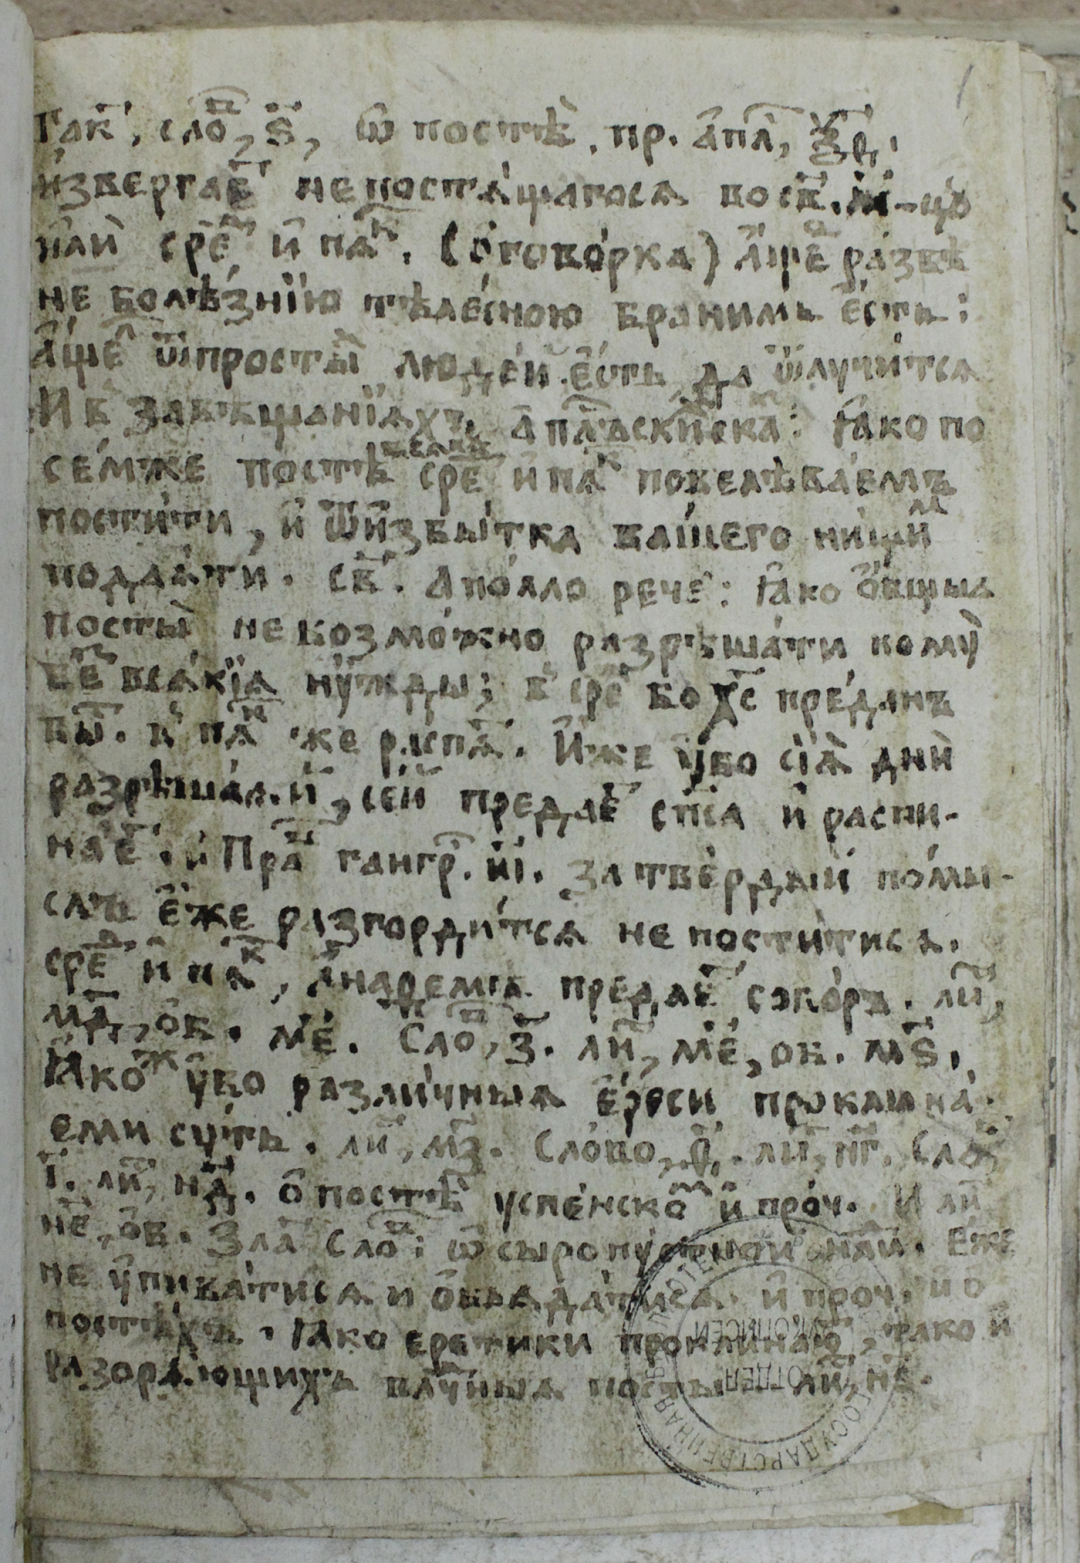 Так, сло, ѕ, ѿ постѣ, пр. апл, ѯѳ.
извергаеᵀ непостящагося восв. м-цу
или сре и пяᴷ. (оговорка) аще развѣ
не болѣзнїю тѣлесною бранимъ есть:
аще ѿпросты людей есть да ѿлучится
И в завѣщанїяхъ апл҃скиⷯ: Яко по
семже постѣ сре и пяᴷ повелѣваемъ
постити, и ѿизбытка вашего нищиᴹ
подаяти. св. Аполло рече: яко общыя
посты невозможно разрѣшати кому
бе всякїя нужды; в сре бо хс преданъ
бы. в пя же распя. Иже убо сїя дни
разрѣшаяй, сей предае сп҃са и распи-
нае. и Пра гангр. иі. за твердый помы-
слъ еже разгордится не поститися.
сре и пяᴷ, анафема предае соборъ. ли,
мд, об. ме. Сло, з. ли, ме, об. мѕ,
Якоⷤ убо различныя ереси проклина-
еми суть. ли, мз. Слово, ѳ. ли, нг. Сло
і. ли, нд. о постѣ успенскоᴹ и проч. И ли
не, об. Зла Сло: ѿ сыропустныи нли. Еже
не упиватися и объядатися. и проч. и о
постѣхъ. Яко еретики проклинаю, тако и
разоряющихъ посты ли, не.
ГОСУДАРСТВЕННАЯ
ОТДЕЛ
РУКОПИСЕЙ